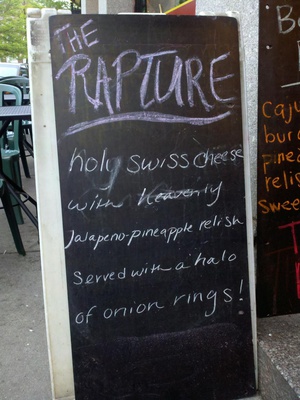 THE
RAPTURE
holy swiss cheese
with heavenly
Jalapeno-pineapple relish
Served with a halo
of onion rings!
B
Caju
bur
pine
relis
swee